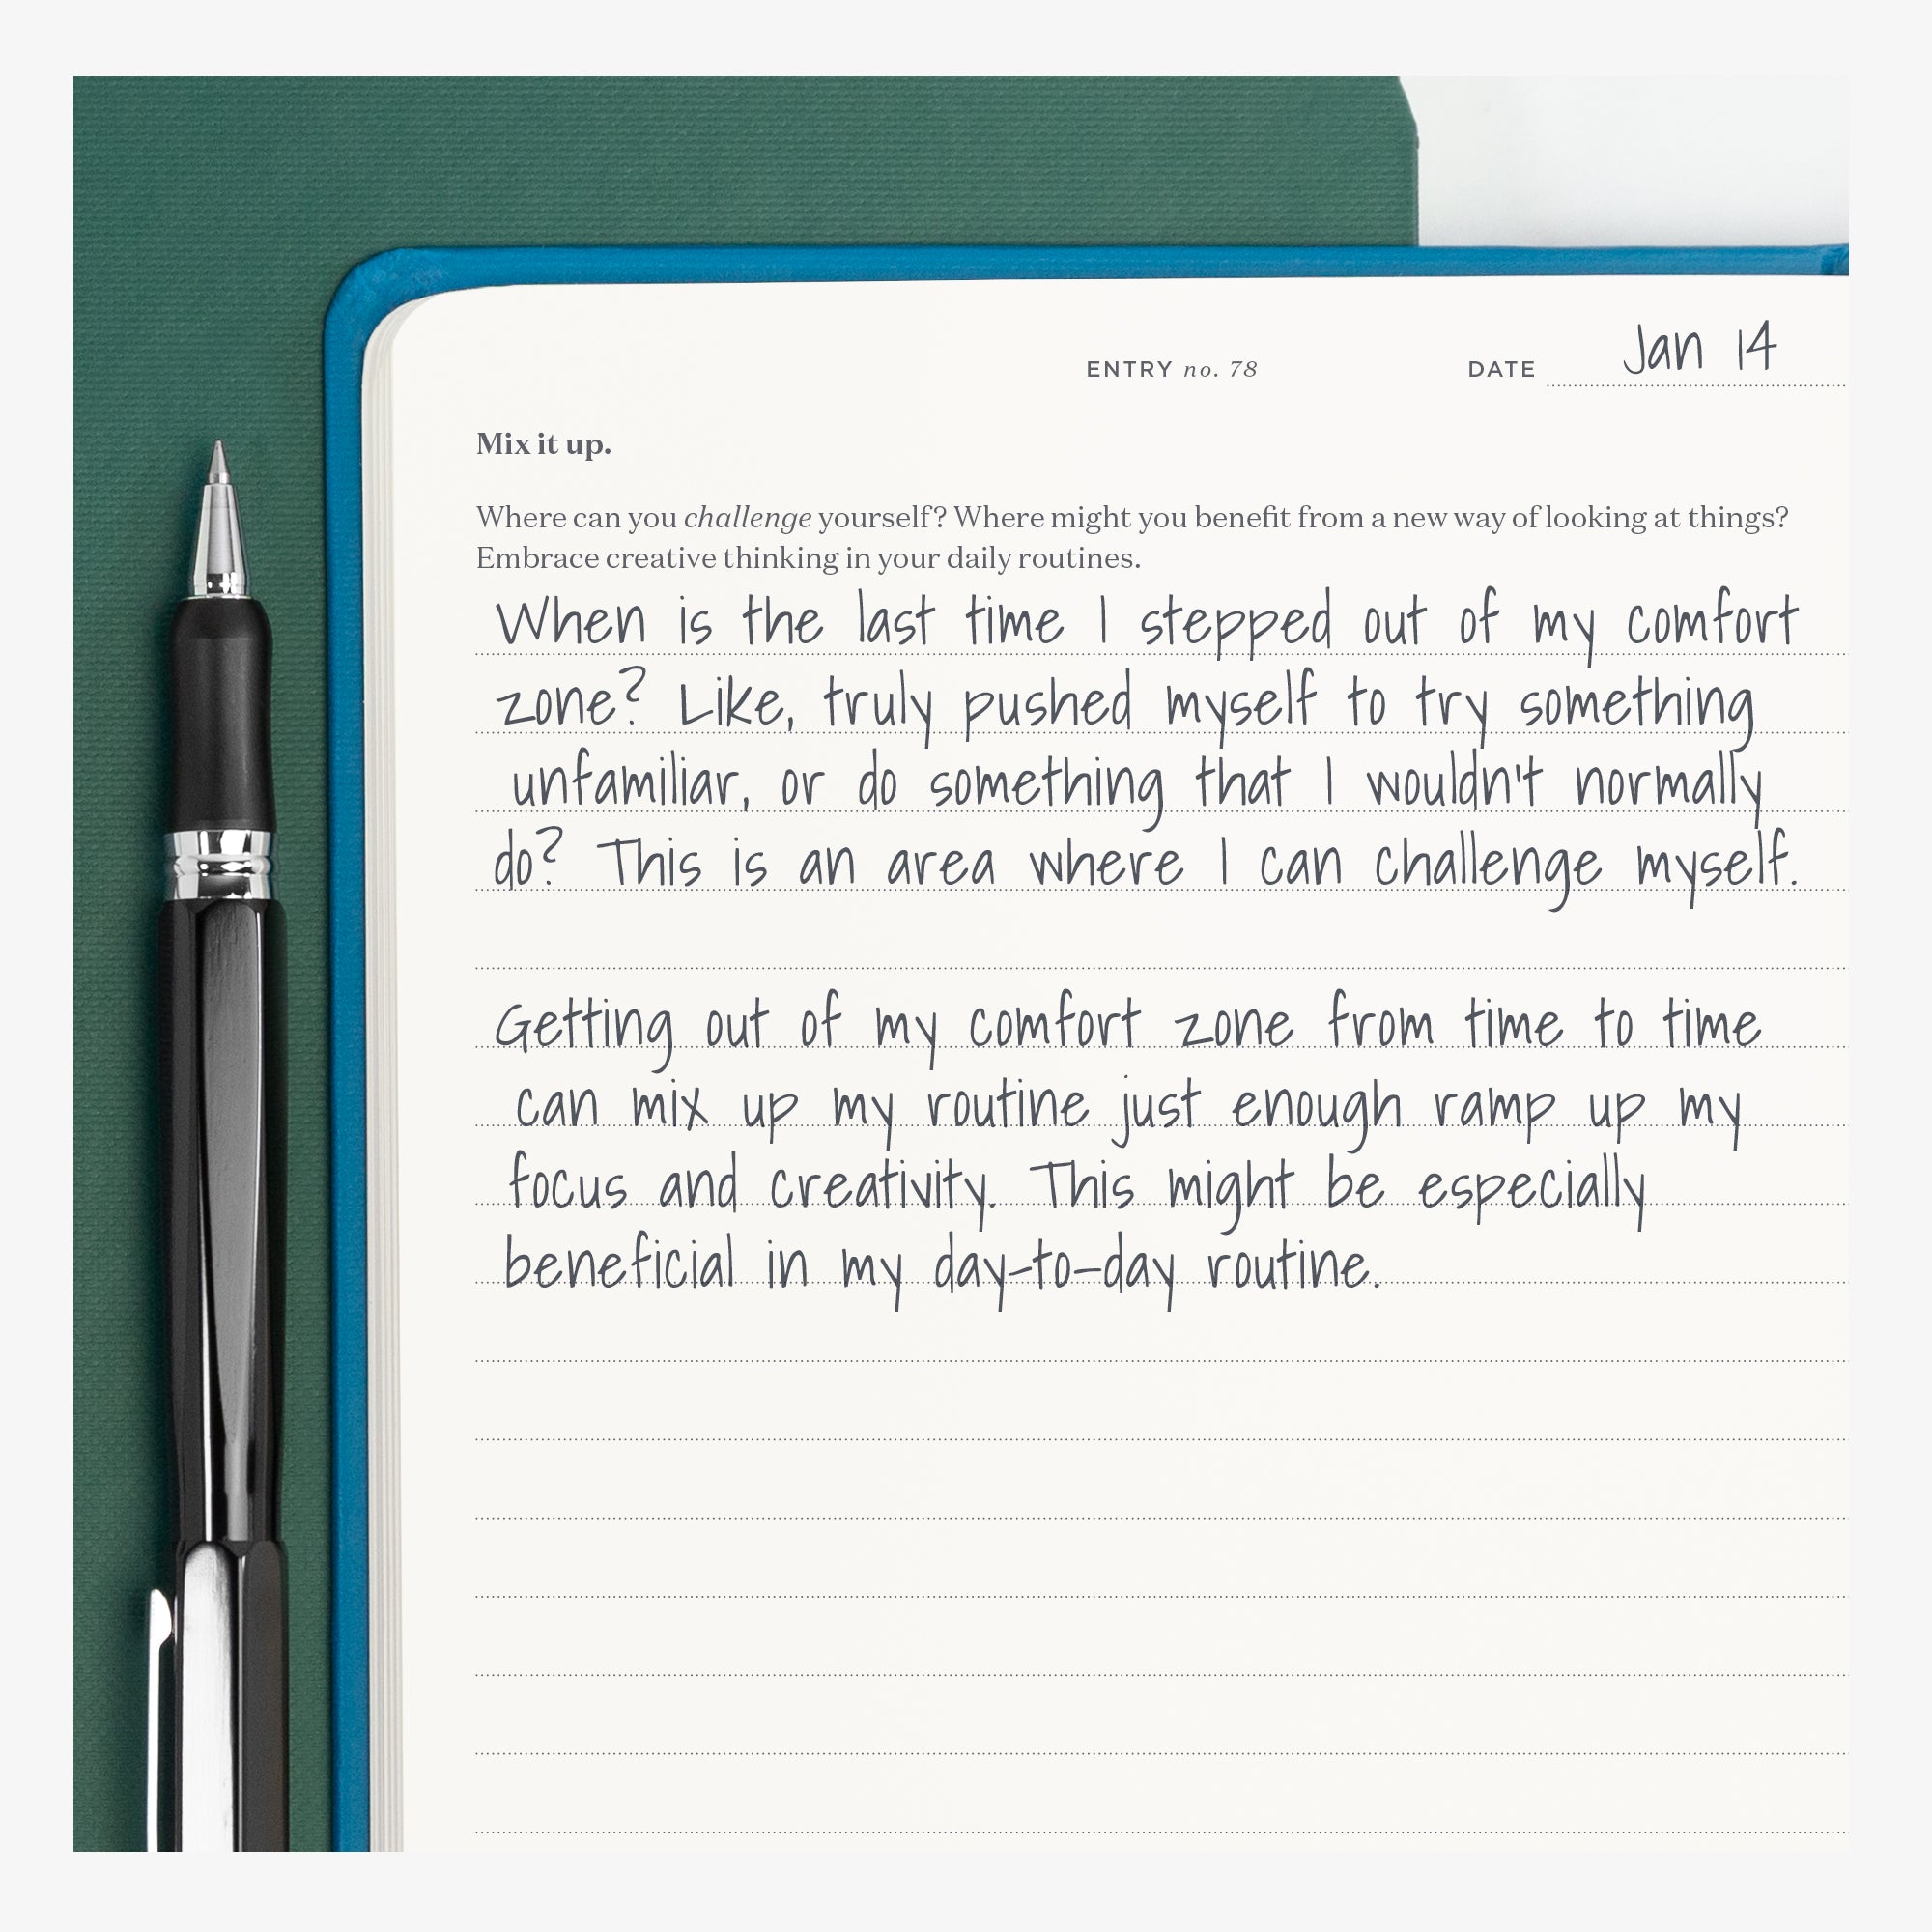 ENTRY no. 78 DATE Jan 14
Mix it up.
Where can you challenge yourself? Where might you benefit from a new way of looking at things?
Embrace creative thinking in your daily routines.
When is the last time I stepped out of my comfort
zone? Like, truly pushed myself to try something
unfamiliar, or do something that I wouldn't normally
do? This is an area where I can challenge myself.
Getting out of my comfort zone from time to time
can mix up my routine just enough ramp up my
focus and creativity. This might be especially
beneficial in my day-to-day routine.